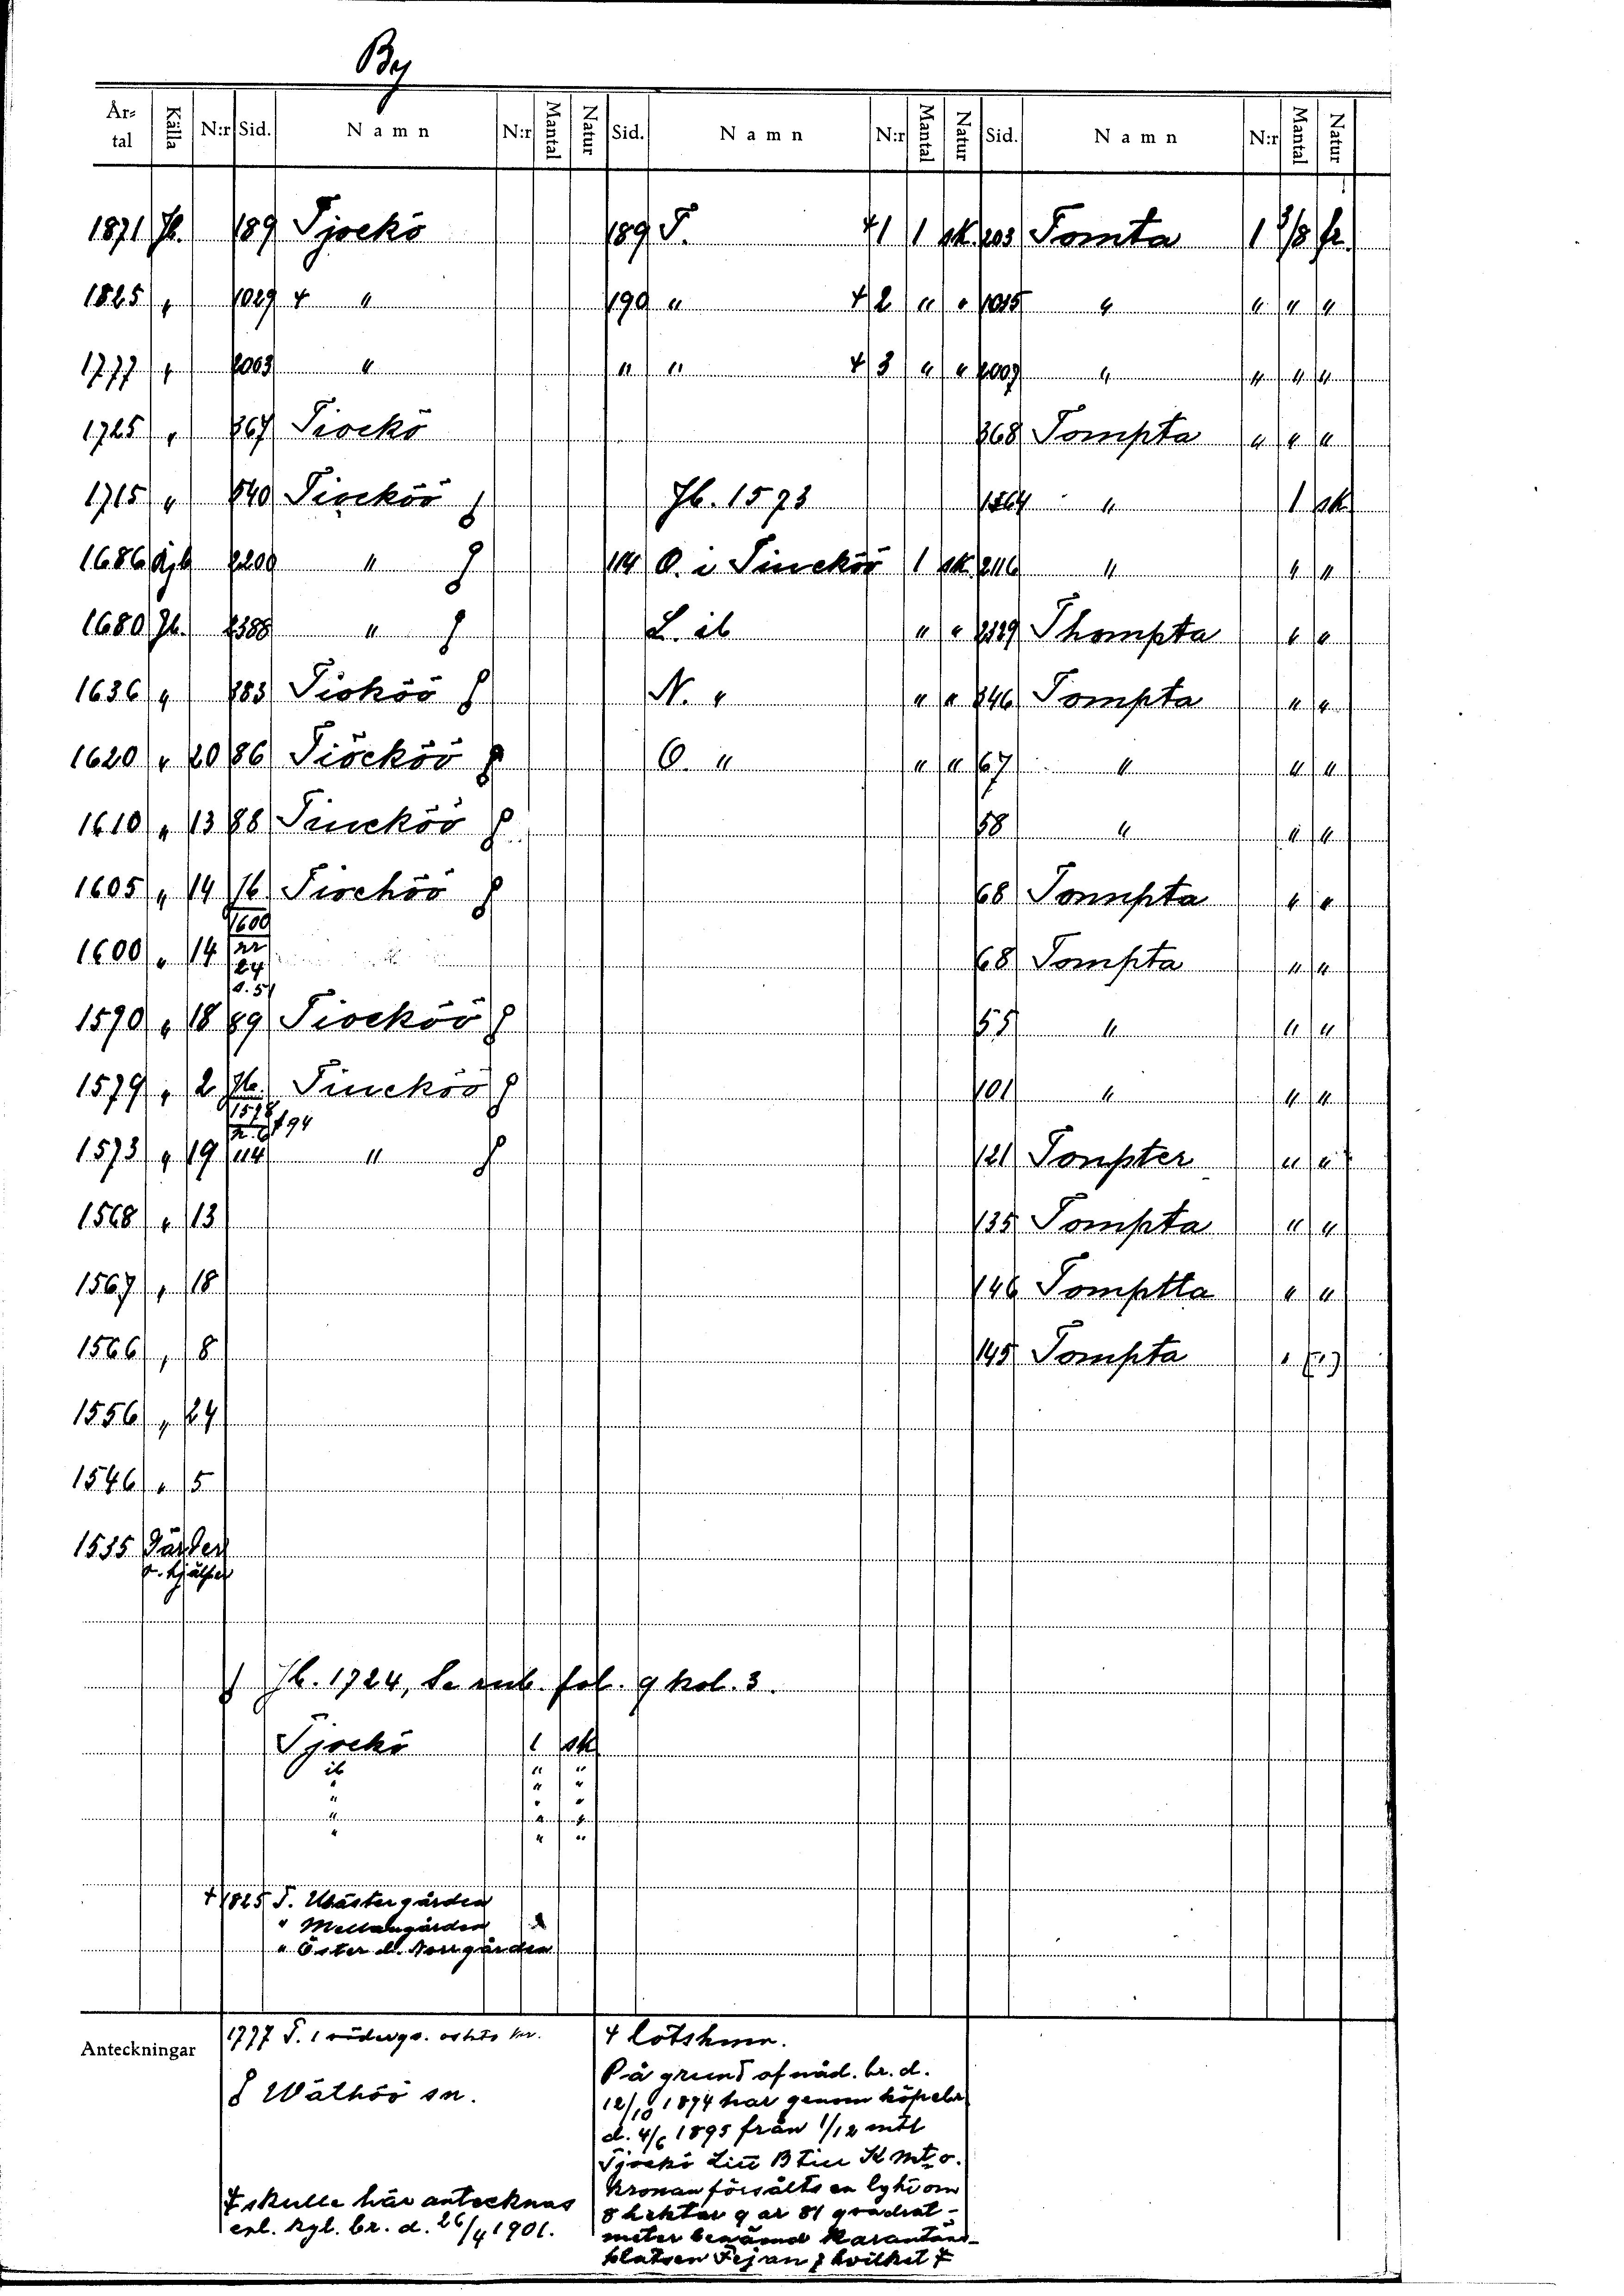 By
År-tal Källa N:r Sid. Namn N:r Mantal Natur Sid. Namn N:r Mantal Natur Sid. Namn N:r Mantal Natur
1871 Jb. 189 Tjockö 189 T. +1 1 sk. 203 Tomta 1 3/8 fr.
1825 " 1029 + " 190 " +2 " " 1015 " " " "
1777 " 2003 " " " +3 " " 2009 " " " "
1725 " 367 Tiockö 368 Tompta " " "
1715 " 540 Tiocköö Jb. 1573 1564 " 1 sk
1686 Ajb 2200 " 114 O. i Tiucköö 1 sk 2116 " " "
1680 Jb. 2388 " L. ib " " 2339 Thompta " "
1636 " 383 Tioköö N. " " " 346 Tompta " "
1620 " 20 86 Tiöcköö O. " " " 67 " " "
1610 " 13 88 Tiucköö 58 " " "
1605 " 14 76 Tiochöö 68 Tommpta " "
1600 " 14 1600 nr 24 s. 51 68 Tompta " "
1590 " 18 89 Tiocköö 55 " " "
1579 " 2 Jb. 1578 n. 6 194 Tiucköö 101 " " "
1573 " 19 114 " 121 Tonpter " "
1568 " 13 135 Tompta " "
1567 " 18 146 Tomptta " "
1566 " 8 145 Tompta " (")
1556 " 24
1546 " 5
1535 Gärder
o. hjälper
Jb. 1724, Se fol. 9 kol. 3.
Tjockö 1 sk
ib " "
" " "
" " "
" " "
" " "
+ 1825 T. Wästergården
" Mellangården
" Öster d. Norrgården
Anteckningar
1777 T. 1
Wäthöö sn.
‡ skulle här antecknas
enl. kgl. br. d. 26/4 1901.
+ lotshmn.
På grund af nåd. br. d.
12/10 1894 har genom köpebr
d. 4/6 1895 från 1/12 mtl
Tjockö Litt B till K Mt o.
Kronan försålts en lght om
8 hektar 9 ar 81 qvadrat-
meter benämnd Karantäns-
platsen Fejan, hvilket ‡